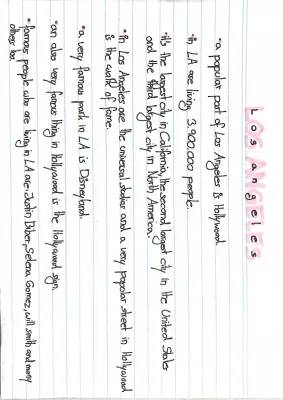 LOS ANGELES
Los angeles
•a popular part of Los Angeles is Hollywood.
•in LA are living 3.900.000 people.
•it's the largest city in California, the second largest city in the United States
and the third largest city in North America.
•in Los Angeles are the universal studios and a very popular street in Hollywood
is the walk of fame.
•a very famous park in LA is Disneyland.
•an also very famous thing in Hollywood is the Hollywood sign.
•famous people who are living in LA are: Justin Biber, Selena Gomez, will smith and many
others too.